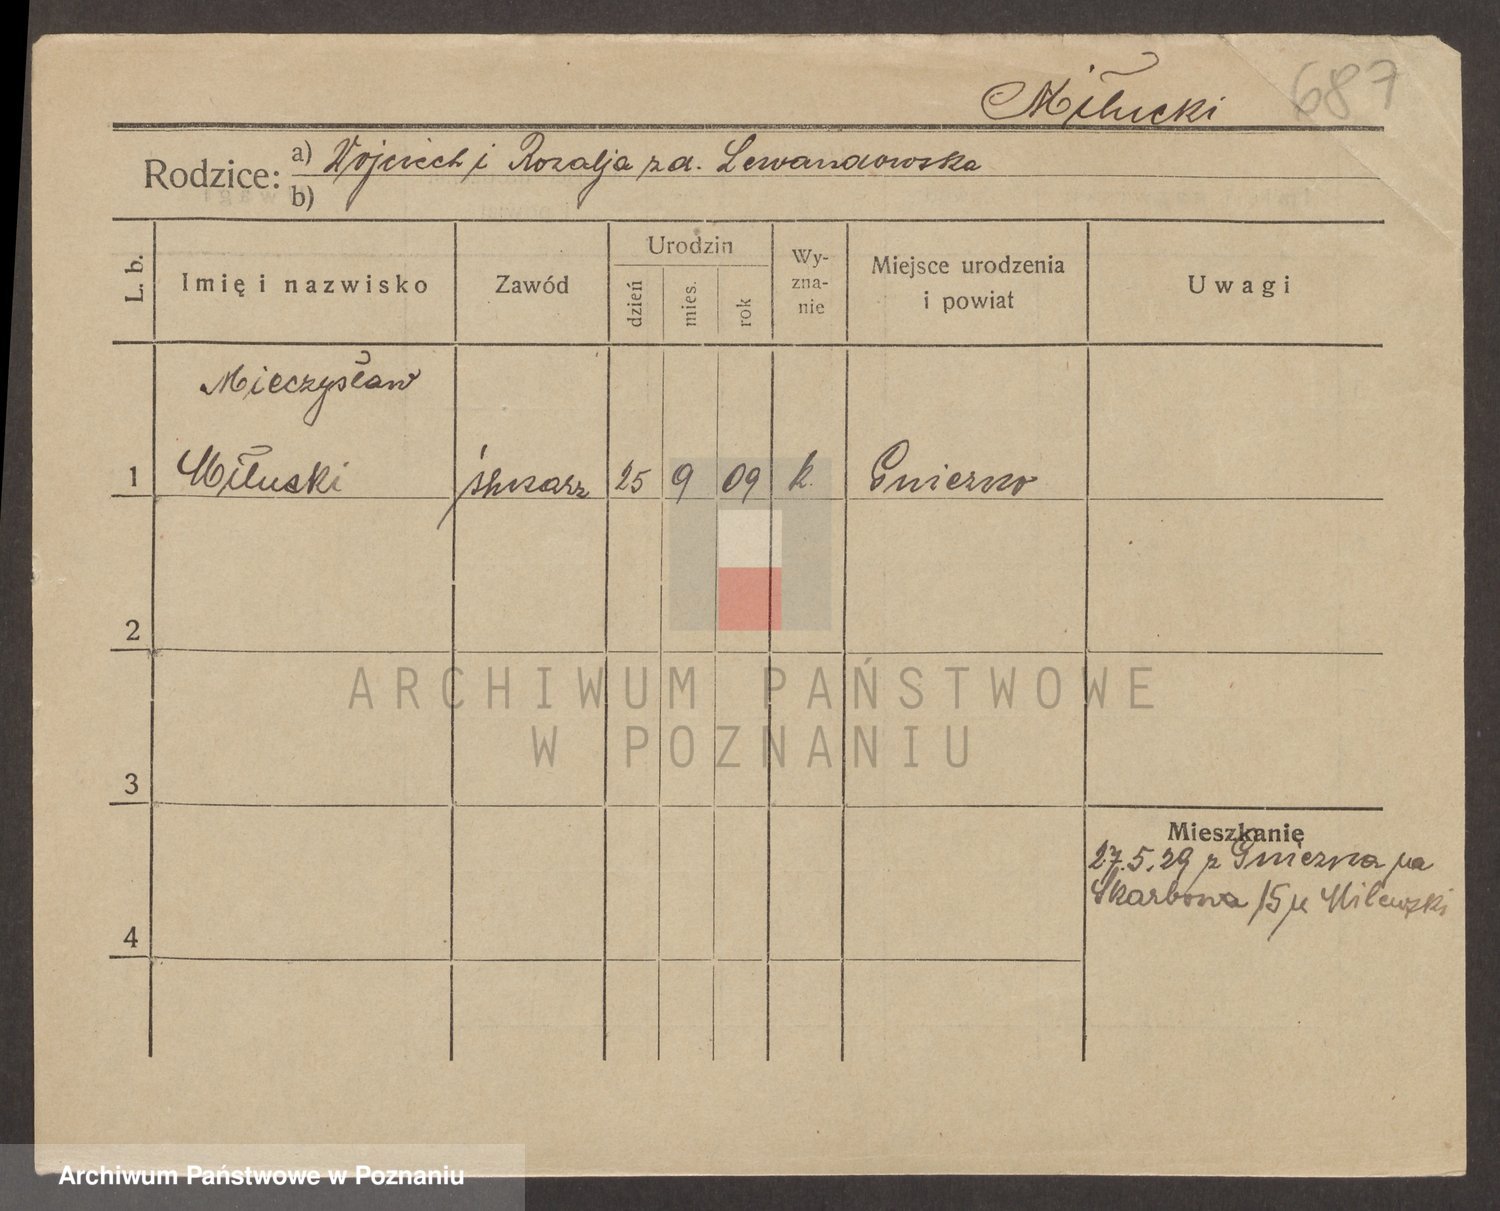 Miłucki
687
Rodzice: a) Wojciech i Rozalja zd. Lewandowska
b)
L. b.
Imię i nazwisko
Zawód
Urodzin
dzień
mies.
rok
Wy-
zna-
nie
Miejsce urodzenia
i powiat
Uwagi
Mieczysław
1 Miłucki ślusarz 25 9 09 k. Gniezno
2
ARCHIWUM PAŃSTWOWE
W POZNANIU
3
Mieszkanie
27.5.29 z Gniezna na
Skarbowa 15 u Milewski
4
Archiwum Państwowe w Poznaniu